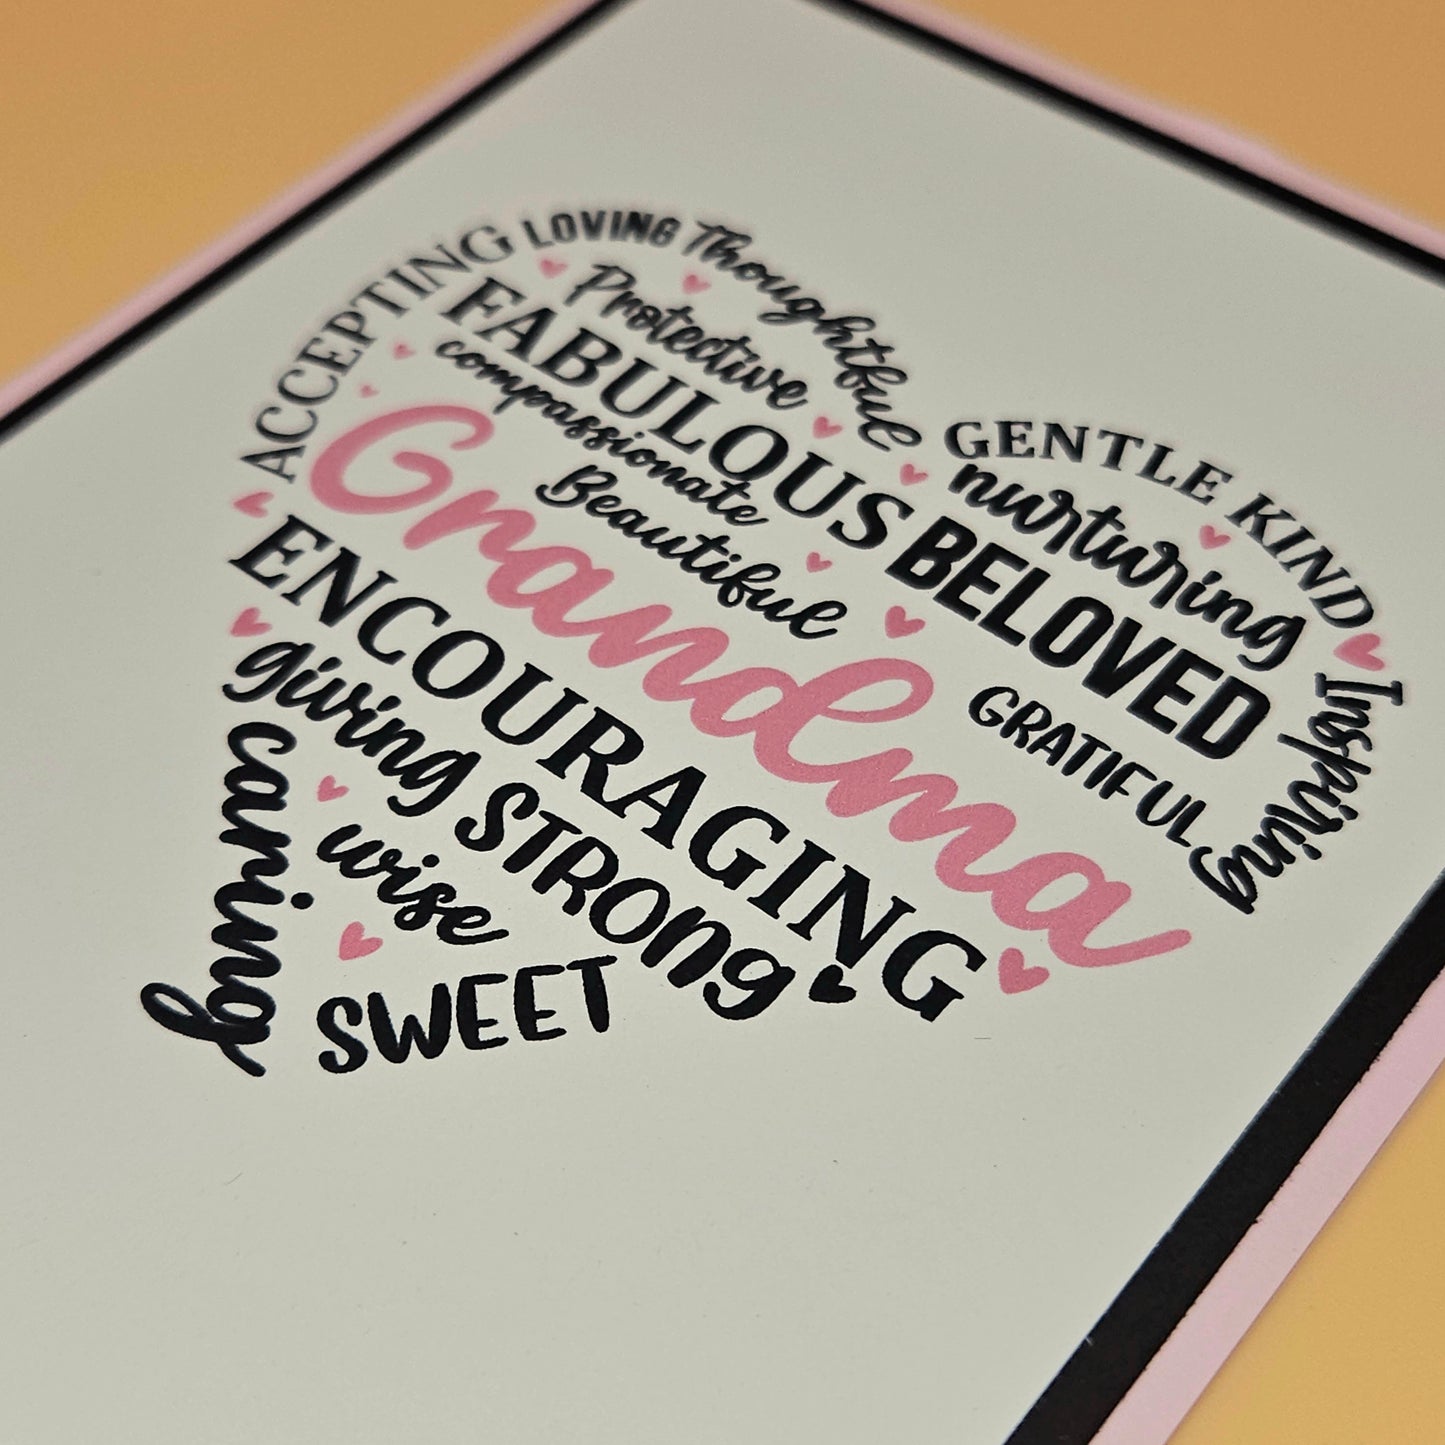 ACCEPTING LOVING Thoughtful
Protective
FABULOUS
compassionate
Beautiful
GENTLE KIND
nurturing
BELOVED
GRATIFUL
Inspiring
Grandma
ENCOURAGING
giving STRONg
caring
wise
SWEET